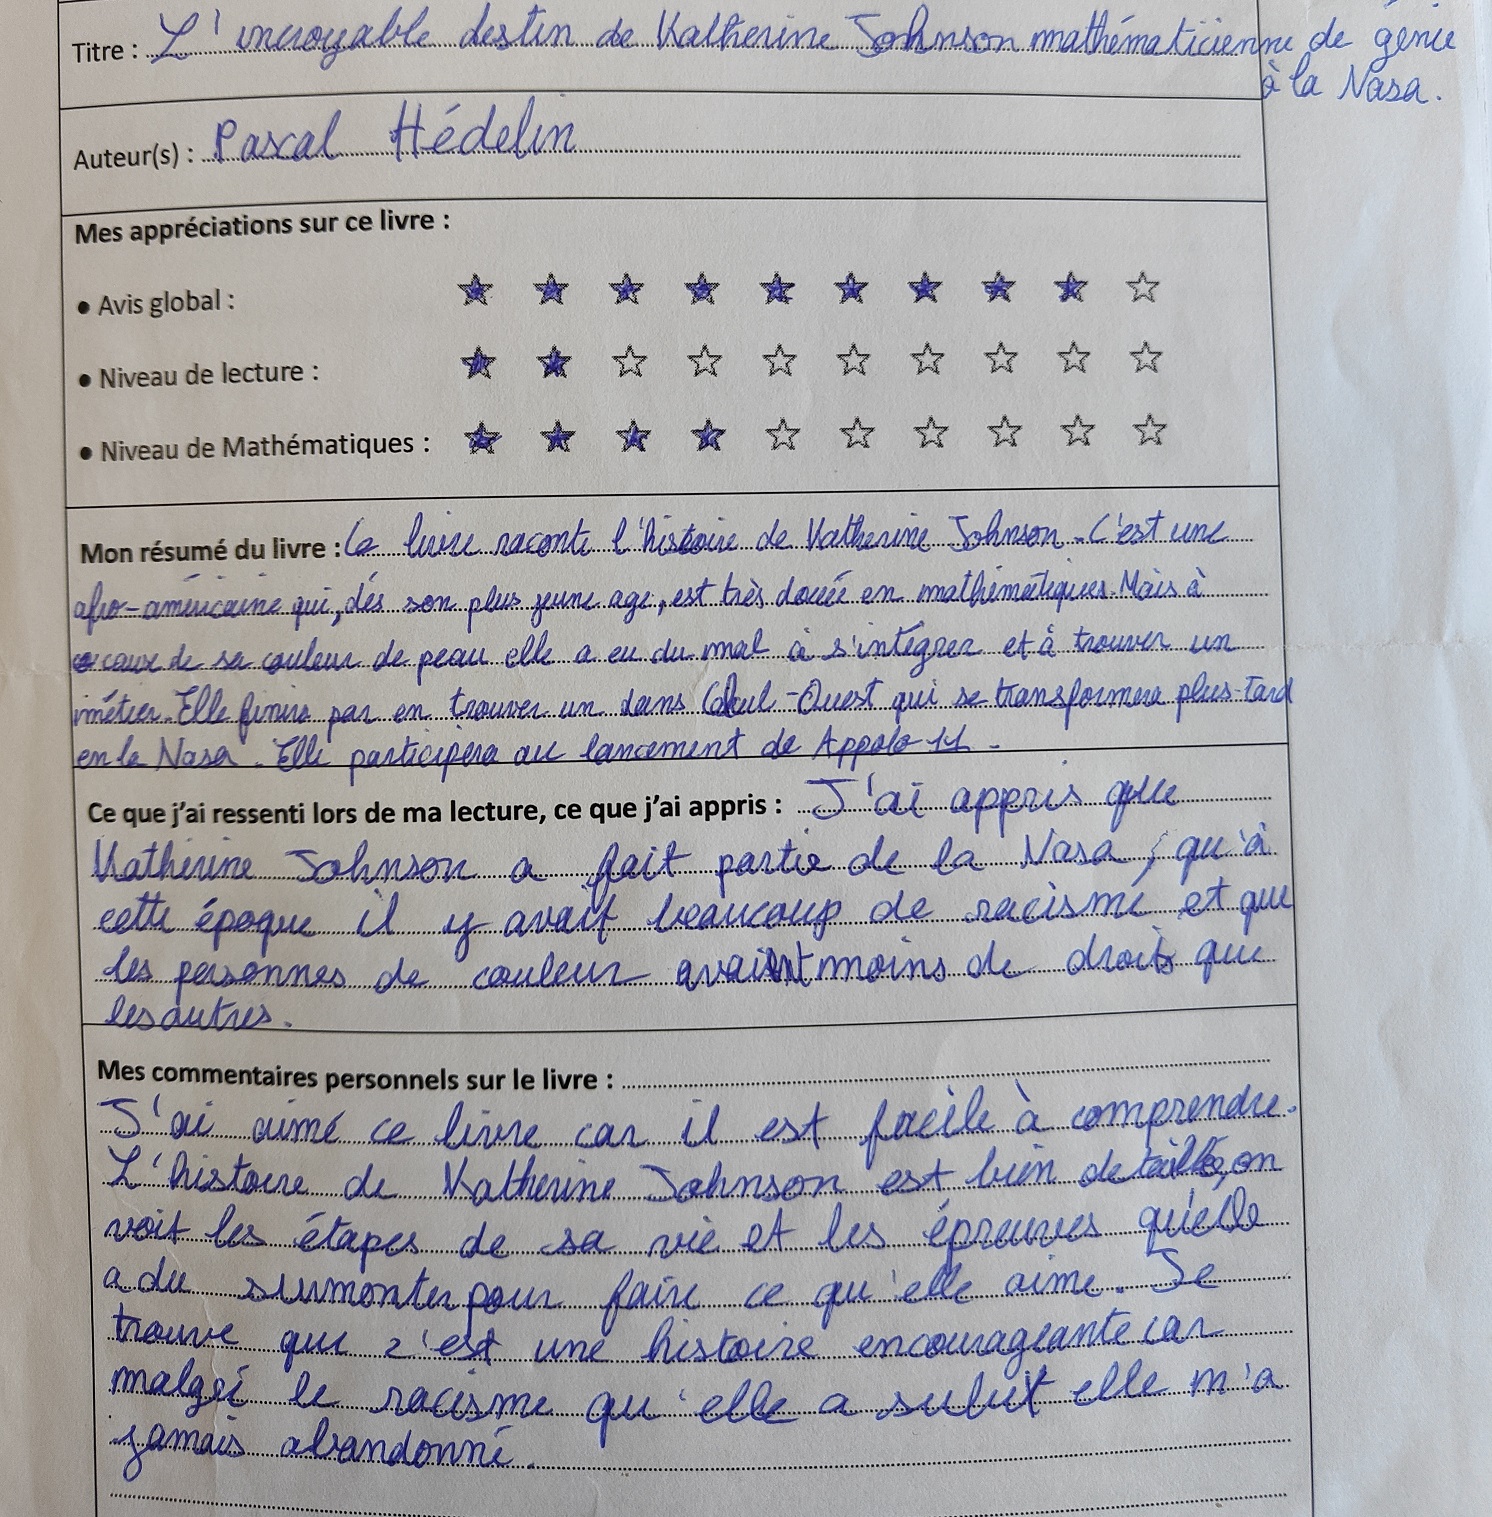 Titre : L'incroyable destin de Katherine Johnson mathématicienne de génie
à la Nasa.
Auteur(s) : Pascal Hédelin
Mes appréciations sur ce livre :
• Avis global :
• Niveau de lecture :
• Niveau de Mathématiques :
Mon résumé du livre : Ce livre raconte l'histoire de Katherine Johnson. C'est une
afro-américaine qui, dés son plus jeune age, est très douée en mathématiques. Mais à
cause de sa couleur de peau elle a eu du mal à s'intégrer et à trouver un
métier. Elle finira par en trouver un dans -Ouest qui se transformera plus-tard
en la Nasa. Elle participera au lancement de Appolo 11.
Ce que j'ai ressenti lors de ma lecture, ce que j'ai appris : J'ai appris que
Katherine Johnson a fait partie de la Nasa, qu'à
cette époque il y avait beaucoup de racisme et que
les personnes de couleur avaient moins de droits que
les autres.
Mes commentaires personnels sur le livre :
J'ai aimé ce livre car il est facile à comprendre.
L'histoire de Katherine Johnson est bien detaillée, on
voit les étapes de sa vie et les épreuves qu'elle
a du surmonter pour faire ce qu'elle aime. Je
trouve que c'est une histoire encourageante car
malgré le racisme qu'elle a subut elle m'a
jamais abandonné.